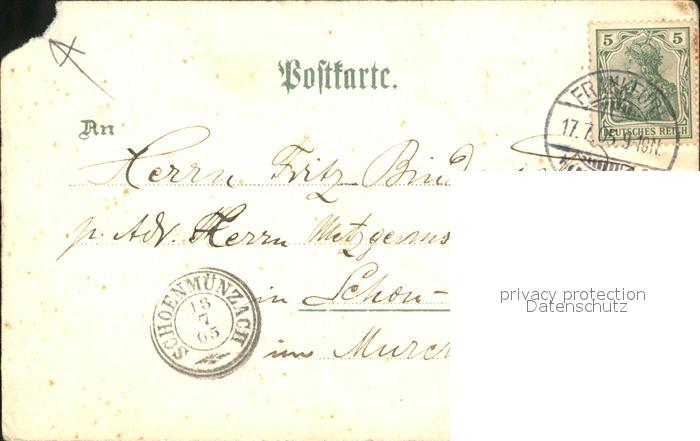 Postkarte.
5 5
DEUTSCHES REICH
FRANKFURT
17.7.05.9-10N.
An
Herrn Fritz
p. Adr. Herrn Metzgerms
in Schön-
im Murg
SCHOENMÜNZACH
18
7
05
privacy protection
Datenschutz